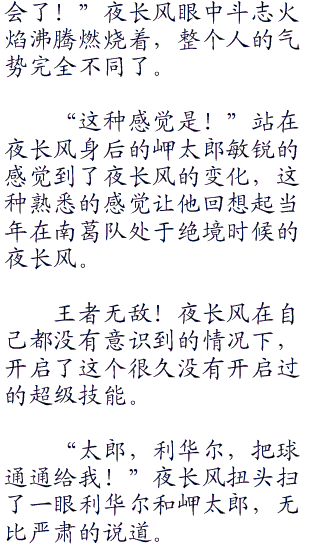 会了！”夜长风眼中斗志火
焰沸腾燃烧着，整个人的气
势完全不同了。
“这种感觉是！”站在
夜长风身后的岬太郎敏锐的
感觉到了夜长风的变化，这
种熟悉的感觉让他回想起当
年在南葛队处于绝境时候的
夜长风。
王者无敌！夜长风在自
己都没有意识到的情况下，
开启了这个很久没有开启过
的超级技能。
“太郎，利华尔，把球
通通给我！”夜长风扭头扫
了一眼利华尔和岬太郎，无
比严肃的说道。